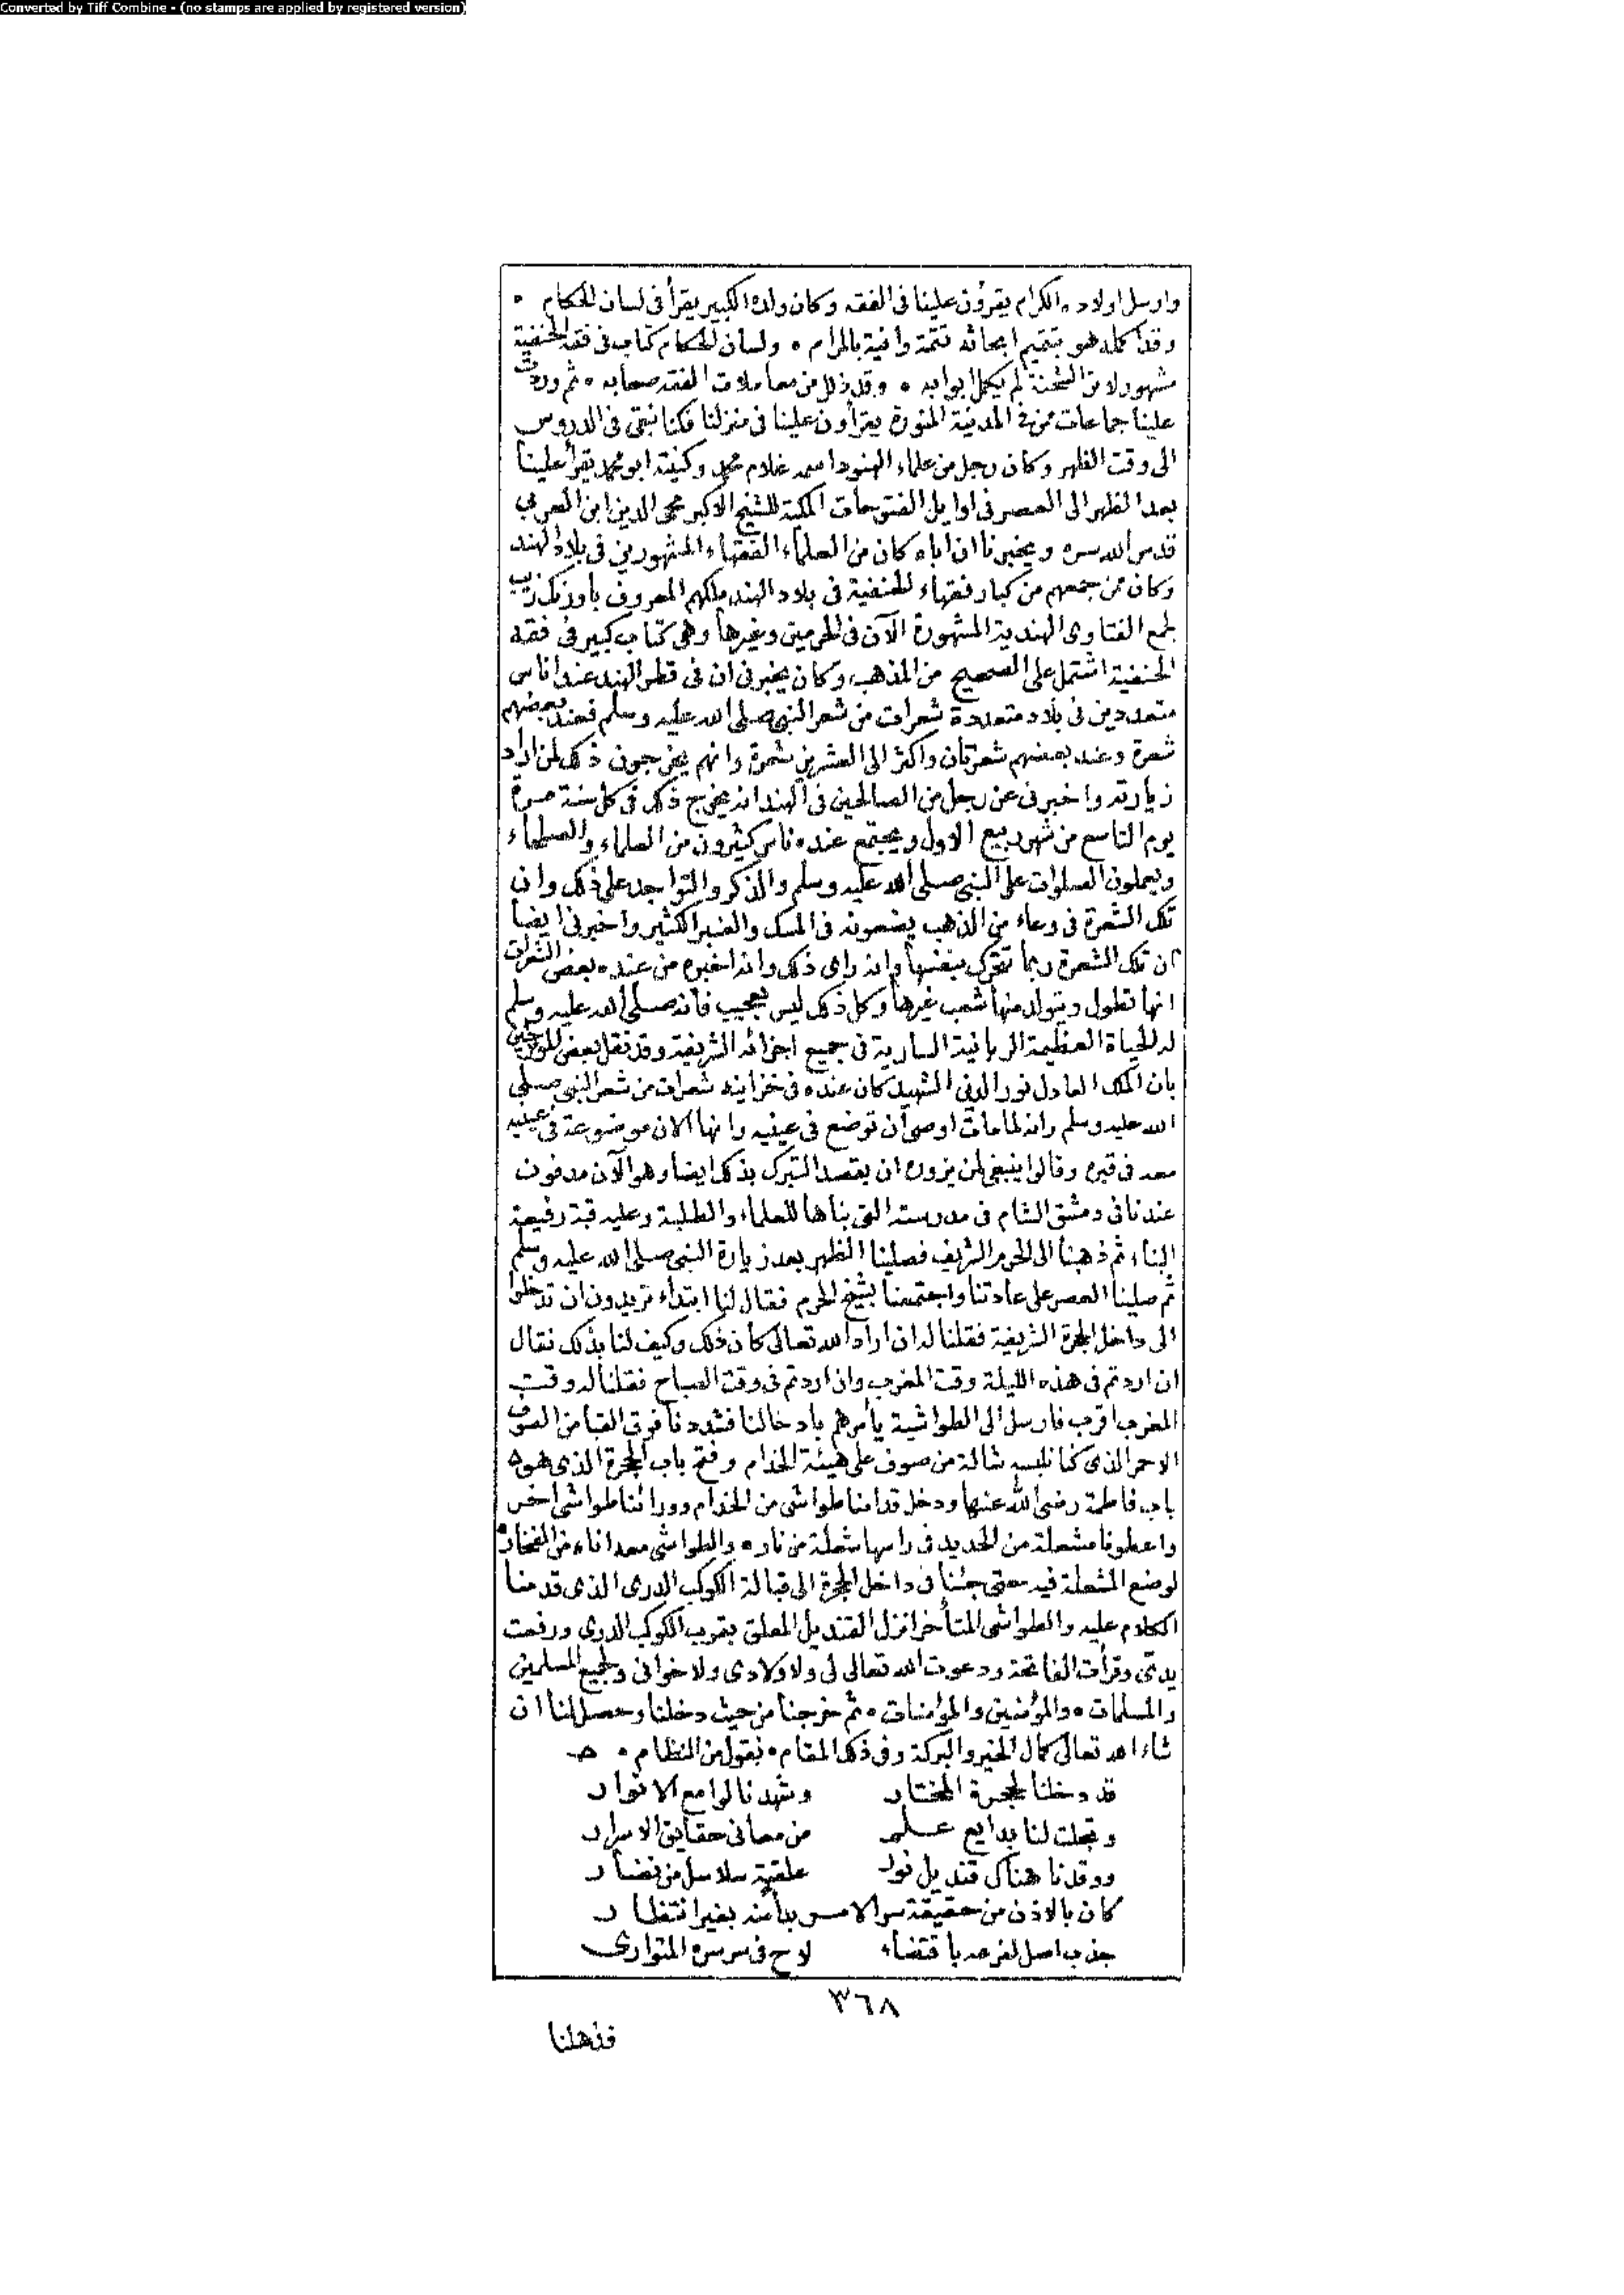 Converted by Tiff Combine - (no stamps are applied by registered version)
وارسل اولاده الكرام يقرؤن علينا فى الفقه وكان ولده الكبير يقرأ فى لسان الحكام .
وقد اكمله هو بتتميم ابحاثه تتمة وافية بالمرام . ولسان الحكام كتاب فى فقه الحنفية
مشهور لابن الشحنة لم يكمل ابوابه . وقد ذلل من معاملات الفقه صعابه . ثم وردت
علينا جماعات ممن فى المدينة المنورة يقرأون علينا فى منزلنا فكنا نبقى فى الدروس
الى وقت الظهر وكان رجل من علماء الهنود اسمه غلام محمد وكنيته ابو محمد يقرأ علينا
بعد الظهر الى العصر فى اوايل الفتوحات المكية للشيخ الاكبر محيى الدين ابن العربي
قدس الله سره ويخبرنا ان اباه كان من العلماء الفقهاء المشهورين فى بلاد الهند
وكان ممن جمعهم من كبار فقهاء الحنفية فى بلاد الهند ملكهم المعروف باورنك زيب
لجمع الفتاوى الهندية المشهورة الآن فى الحرمين وغيرها وهى كتاب كبير فى فقه
الحنفية اشتمل على الصحيح من المذهب وكان يخبرنى ان فى قطر الهند عند اناس
متعددين فى بلاد متعددة شعرات من شعر النبى صلى الله عليه وسلم فعند بعضهم
شعرة وعند بعضهم شعرتان واكثر الى العشرين شعرة وانهم يخرجون ذلك لمن اراد
زيارته واخبرنى عن رجل من الصالحين فى الهند انه يخرج ذلك فى كل سنة مرة
يوم التاسع من شهر ربيع الاول ويجتمع عنده ناس كثيرون من العلماء والصلحاء
ويعملون الصلوات على النبى صلى الله عليه وسلم والذكر والتواجد على ذلك وان
تلك الشعرة فى وعاء من الذهب يضعونه فى المسك والعنبر الكثير واخبرنى ايضا
ان تلك الشعرة ربما تتحرك بنفسها وانه راى ذلك وانه اخبره من عنده بعض الشعرات
انها تطول ويتولد منها شعب غيرها وكل ذلك ليس بعجيب فانه صلى الله عليه وسلم
له الحياة العظيمة الربانية السارية فى جميع اجزائه الشريفة وقد نقل بعض المورخين
بان الملك العادل نور الدين الشهيد كان عنده فى خزاينه شعرات من شعر النبى صلى
الله عليه وسلم وانه لما مات اوصى ان توضع فى عينيه وانها الان موضوعة فى عينيه
معه فى قبره وقالوا ينبغى لمن يزوره ان يقصد التبرك بذلك ايضا وهو الآن مدفون
عندنا فى دمشق الشام فى مدرسته التى بناها للعلماء والطلبة وعليه قبة رفيعة
البناء ثم ذهبنا الى الحرم الشريف فصلينا الظهر بعد زيارة النبى صلى الله عليه وسلم
ثم صلينا العصر على عادتنا واجتمعنا بشيخ الحرم فقال لنا ابتداء تريدون ان تدخلوا
الى داخل الحجرة الشريفة فقلنا له ان اراد الله تعالى كان ذلك وكيف لنا بذلك فقال
ان اردتم فى هذه الليلة وقت المغرب وان اردتم فى وقت الصباح فقلنا له وقت
المغرب اقرب فارسل الى الطواشية يأمرهم بادخالنا فشددنا فوق القبا من الصوف
الاحمر الذى كنا نلبسه شالة من صوف على هيئة الخدام وفتح باب الحجرة الذى هو
باب فاطمة رضى الله عنها ودخل قدامنا طواشى من الخدام وورائنا طواشى اخر
واعطونا مشعلة من الحديد فى راسها شعلة من نار . والطواشى معه اناء من الفخار .
لوضع المشعلة فيه حتى جئنا فى داخل الحجرة الى قبالة الكوكب الدرى الذى قدمنا
الكلام عليه والطواشى المتأخر انزل القنديل المعلق بقرب الكوكب الدرى ورفعت
يدىّ وقرأت الفاتحة ودعوت الله تعالى لى ولاولادى ولاخوانى ولجميع المسلمين
والمسلمات . والمؤمنين والمؤمنات . ثم خرجنا من حيث دخلنا وحصل لنا ان
شاء الله تعالى كمال الخير والبركة وفى ذلك المقام . نقول من النظام .
قد دخلنا لحجرة المختار وشهدنا لوامع الانوار
وتجلت لنا بدايع علم من معانى حقايق الاسرار
ووقدنا هناك قنديل نور علقته سلاسل من نضار
كان بالاذن من حقيقة سر الامر بدأ منه بغير انتظار
جذب اصل لفرعه باقتضاء لاح فى سر سره المتوارى
٣٦٨
فذهلنا